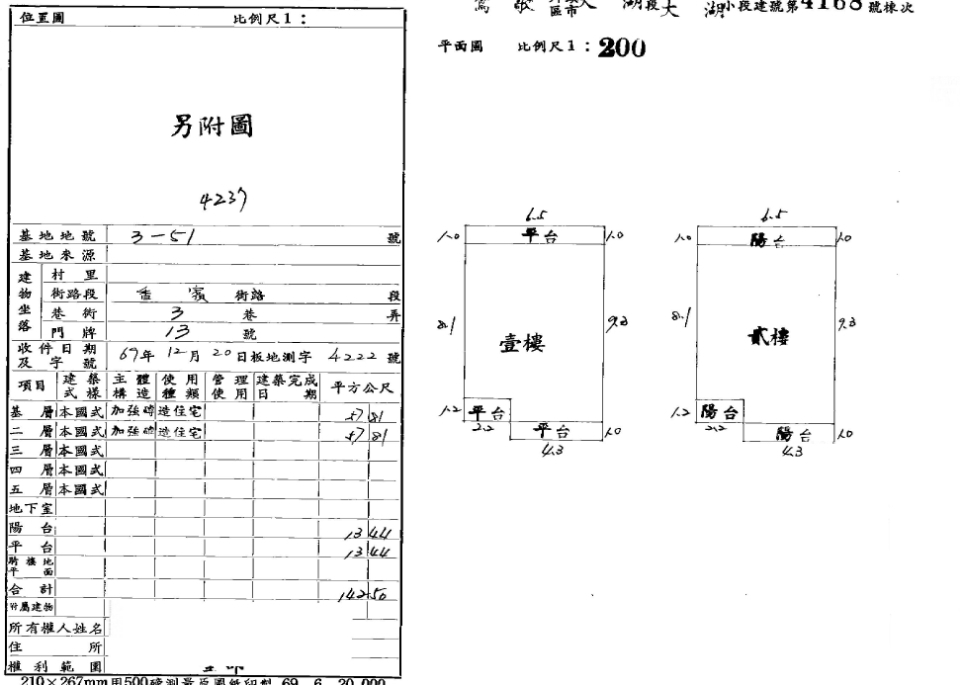 位置圖 比例尺1：
另附圖
4237
基地地號 3-51 號
基地來源
建物坐落 村里
街路段 街路 段
巷衖 3 巷 弄
門牌 13 號
收件日期及字號 69年12月20日板地測字4222號
項目 建築式樣 主體構造 使用種類 管理使用 建築完成日期 平方公尺
基層 本國式 加強磚造 住宅 57 81
二層 本國式 加強磚造 住宅 57 81
三層 本國式
四層 本國式
五層 本國式
地下室
陽台 13 44
平台 13 44
騎樓地平面
合計 142 50
附屬建物
所有權人姓名
住所
權利範圍
210×267mm用500磅測量原圖紙印製 69. 6. 20,000
鶯歌 區市 湖段大湖小段建號第4168號棟次
平面圖 比例尺1：200
6.5
1.0 平台 1.0
8.1 壹樓 9.3
1.2 平台
2.2 平台 1.0
4.3
6.5
1.0 陽台 1.0
8.1 貳樓 9.3
1.2 陽台
2.2 陽台 1.0
4.3